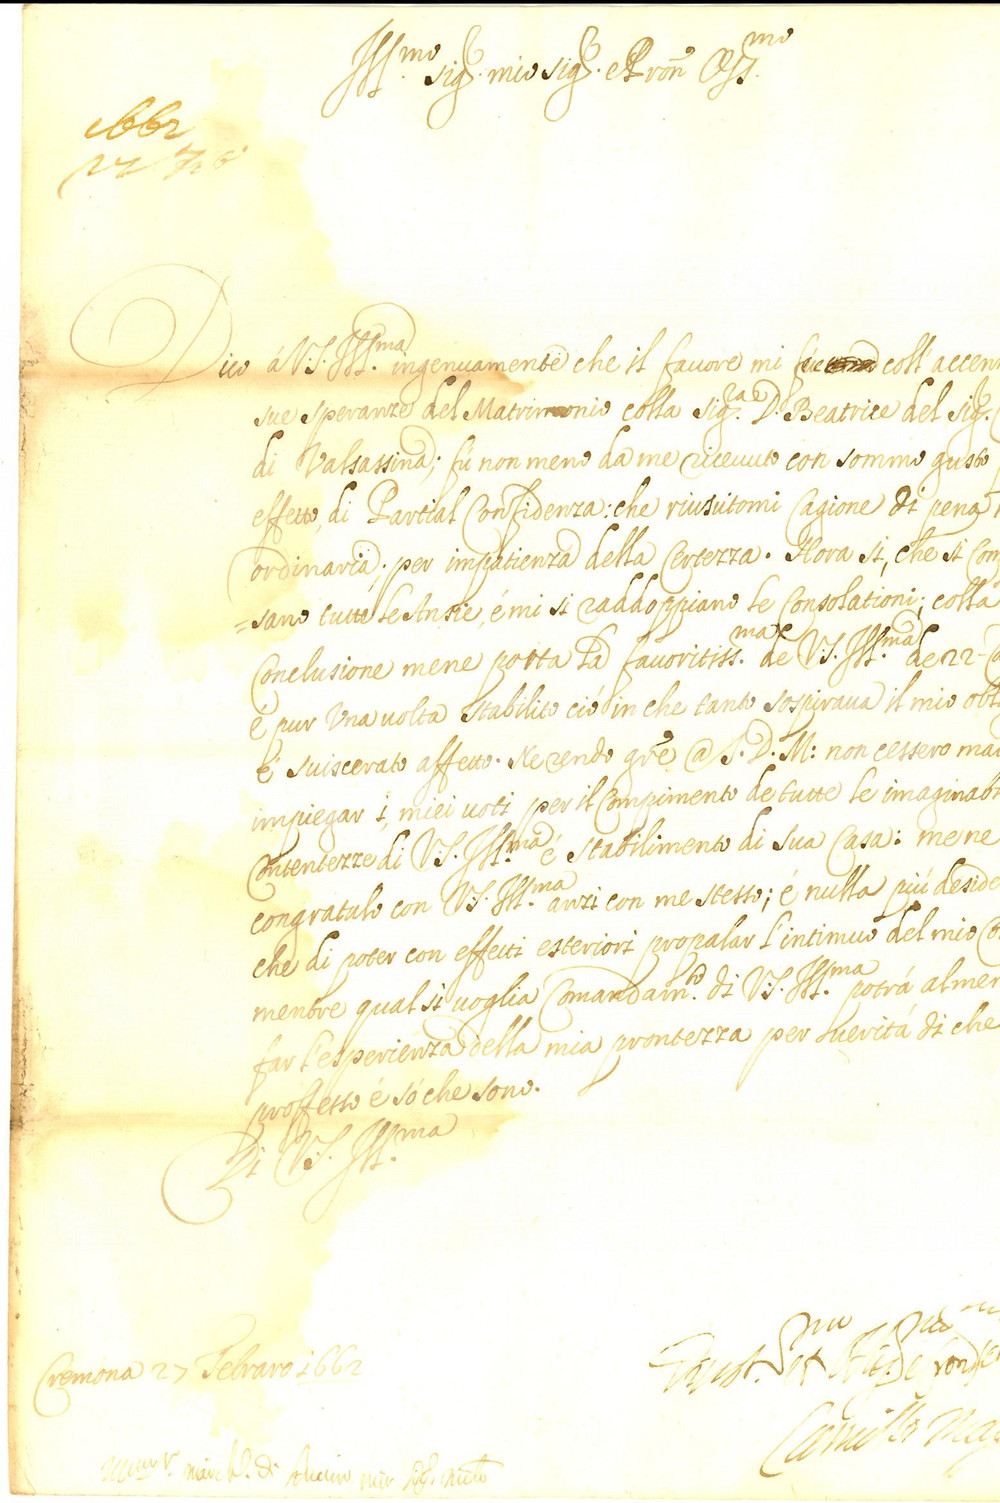 Ill.mo sig.r mio sig.r e P.ron Oss.mo
1662
27 Feb
Dico á V.S. Ill.ma ingenuamente che il favore mi coll'accen
sue speranze del Matrimonio colla Sig.ra D. Beatrice del Sig.
di Valsassina; fú non meno da me riceuuto con sommo gusto
effetto, di Partial Confidenza: che riusuitomi Cagione di pena
ordinaria, per impatienza della Certezza. Hora si, che si Com
=sano tutte le Ansie, é mi si raddoppiano le Consolationi; colla
Conclusione mene porta la favoritiss.ma de V.S. Ill.ma de 22
é pur Una uolta Stabilito ció in che tanto sospiraua il mio obl
é suiscerato affetto. Ne rendo gr.e a S. D. M: non cessero mai
impiegar i miei uoti per il Compimento de tutte le imaginab
Contentezze di V.S. Ill.ma é stabilimento di sua Casa: me ne
congratulo con V.S. Ill.ma anzi con me stesso; é nulla piú deside
che di poter con effetti esteriori propalar l'intimuo del mio Co
mentre qual si uoglia Comandam.to di V.S. Ill.ma potrá almen
far l'esperienza della mia prontezza per uerità di che
proffesso é só che sono.
Di V.S. Ill.ma
Cremona 27 Febraro 1662
Camillo Mag
march. di